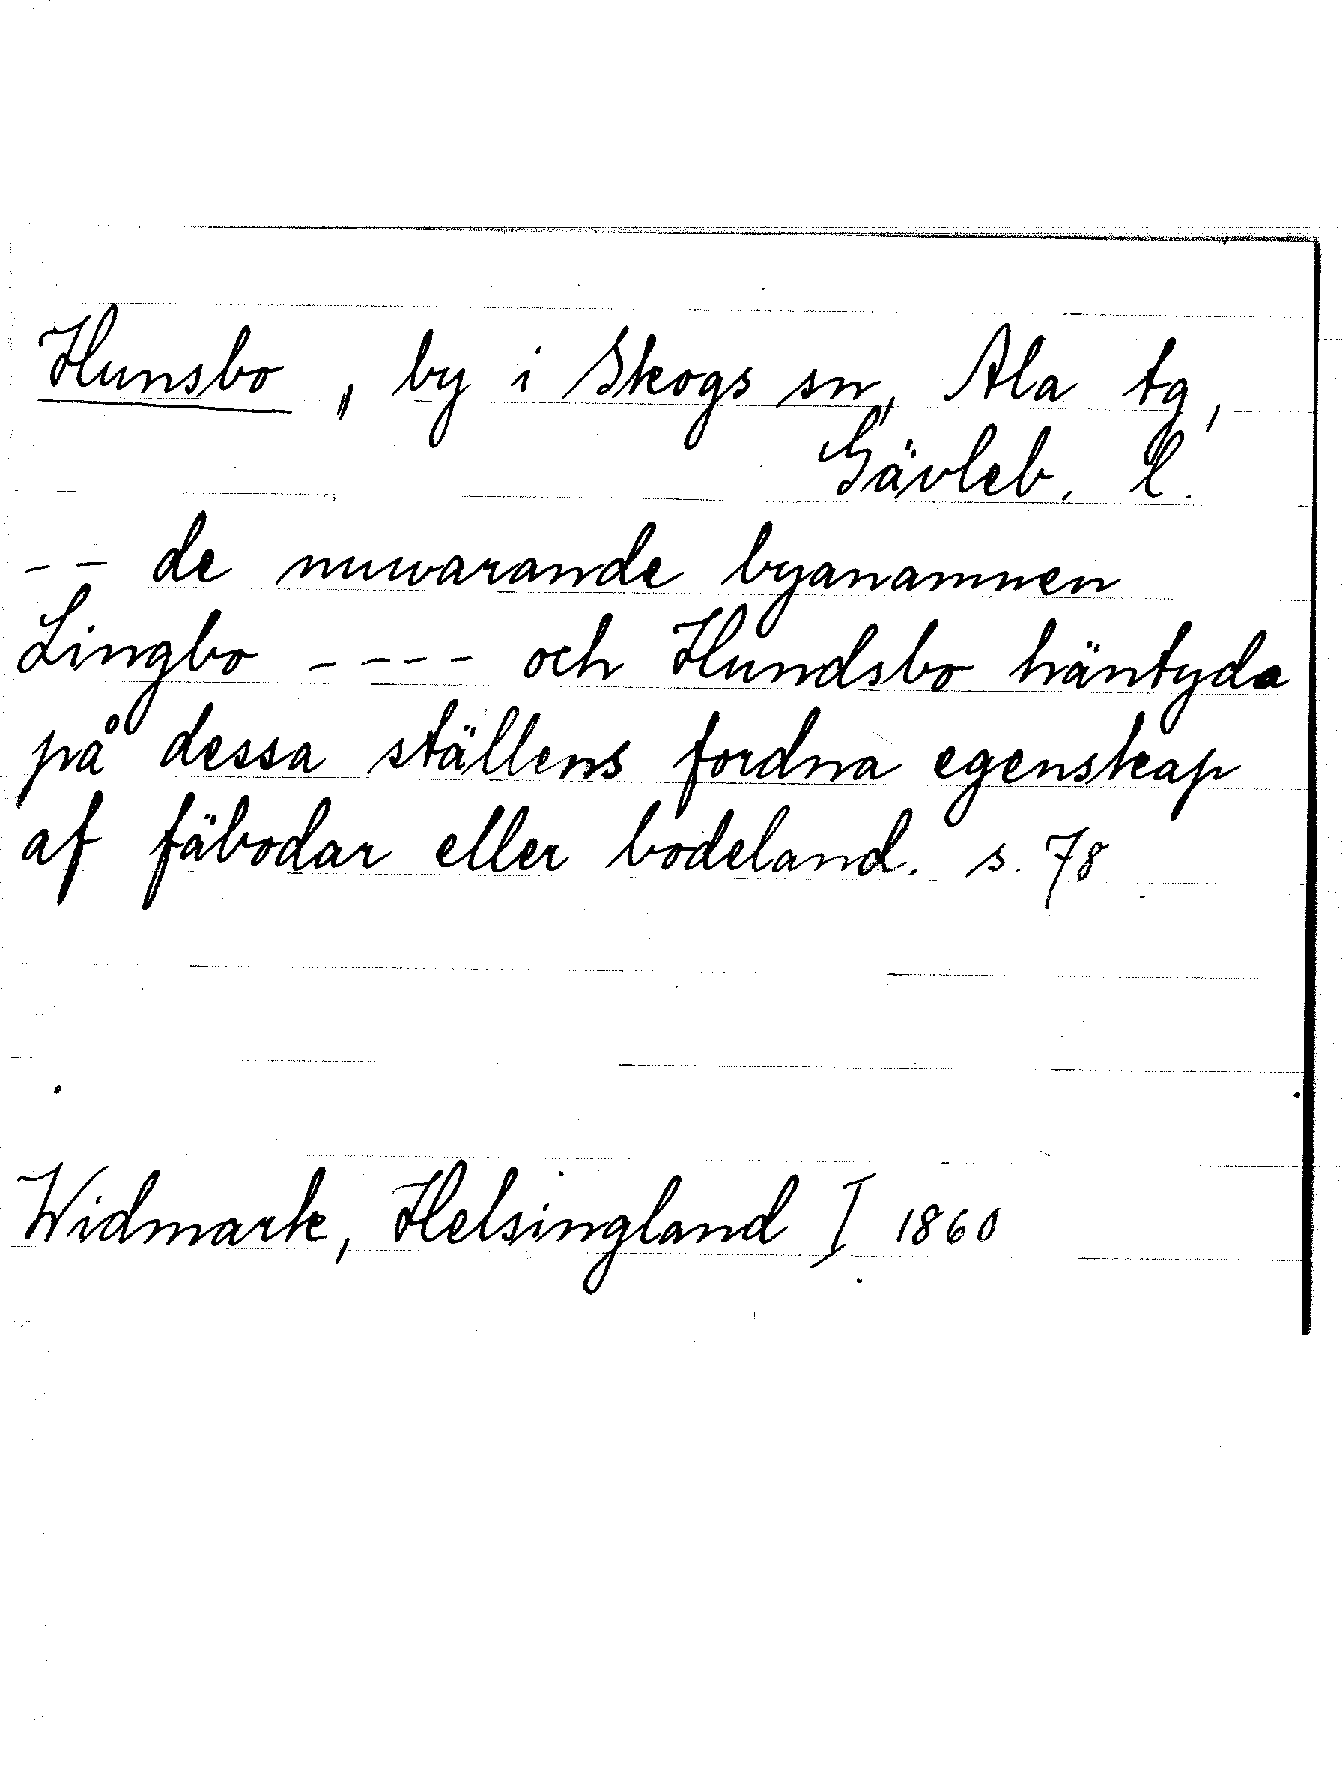 Hunsbo, by i Skogs sn, Ala tg,
Gävleb. l.
-- de nuwarande byanamnen
Lingbo ---- och Hundsbo häntyda
på dessa ställens fordna egenskap
af fäbodar eller bodeland. s. 78
Widmark, Helsingland I 1860